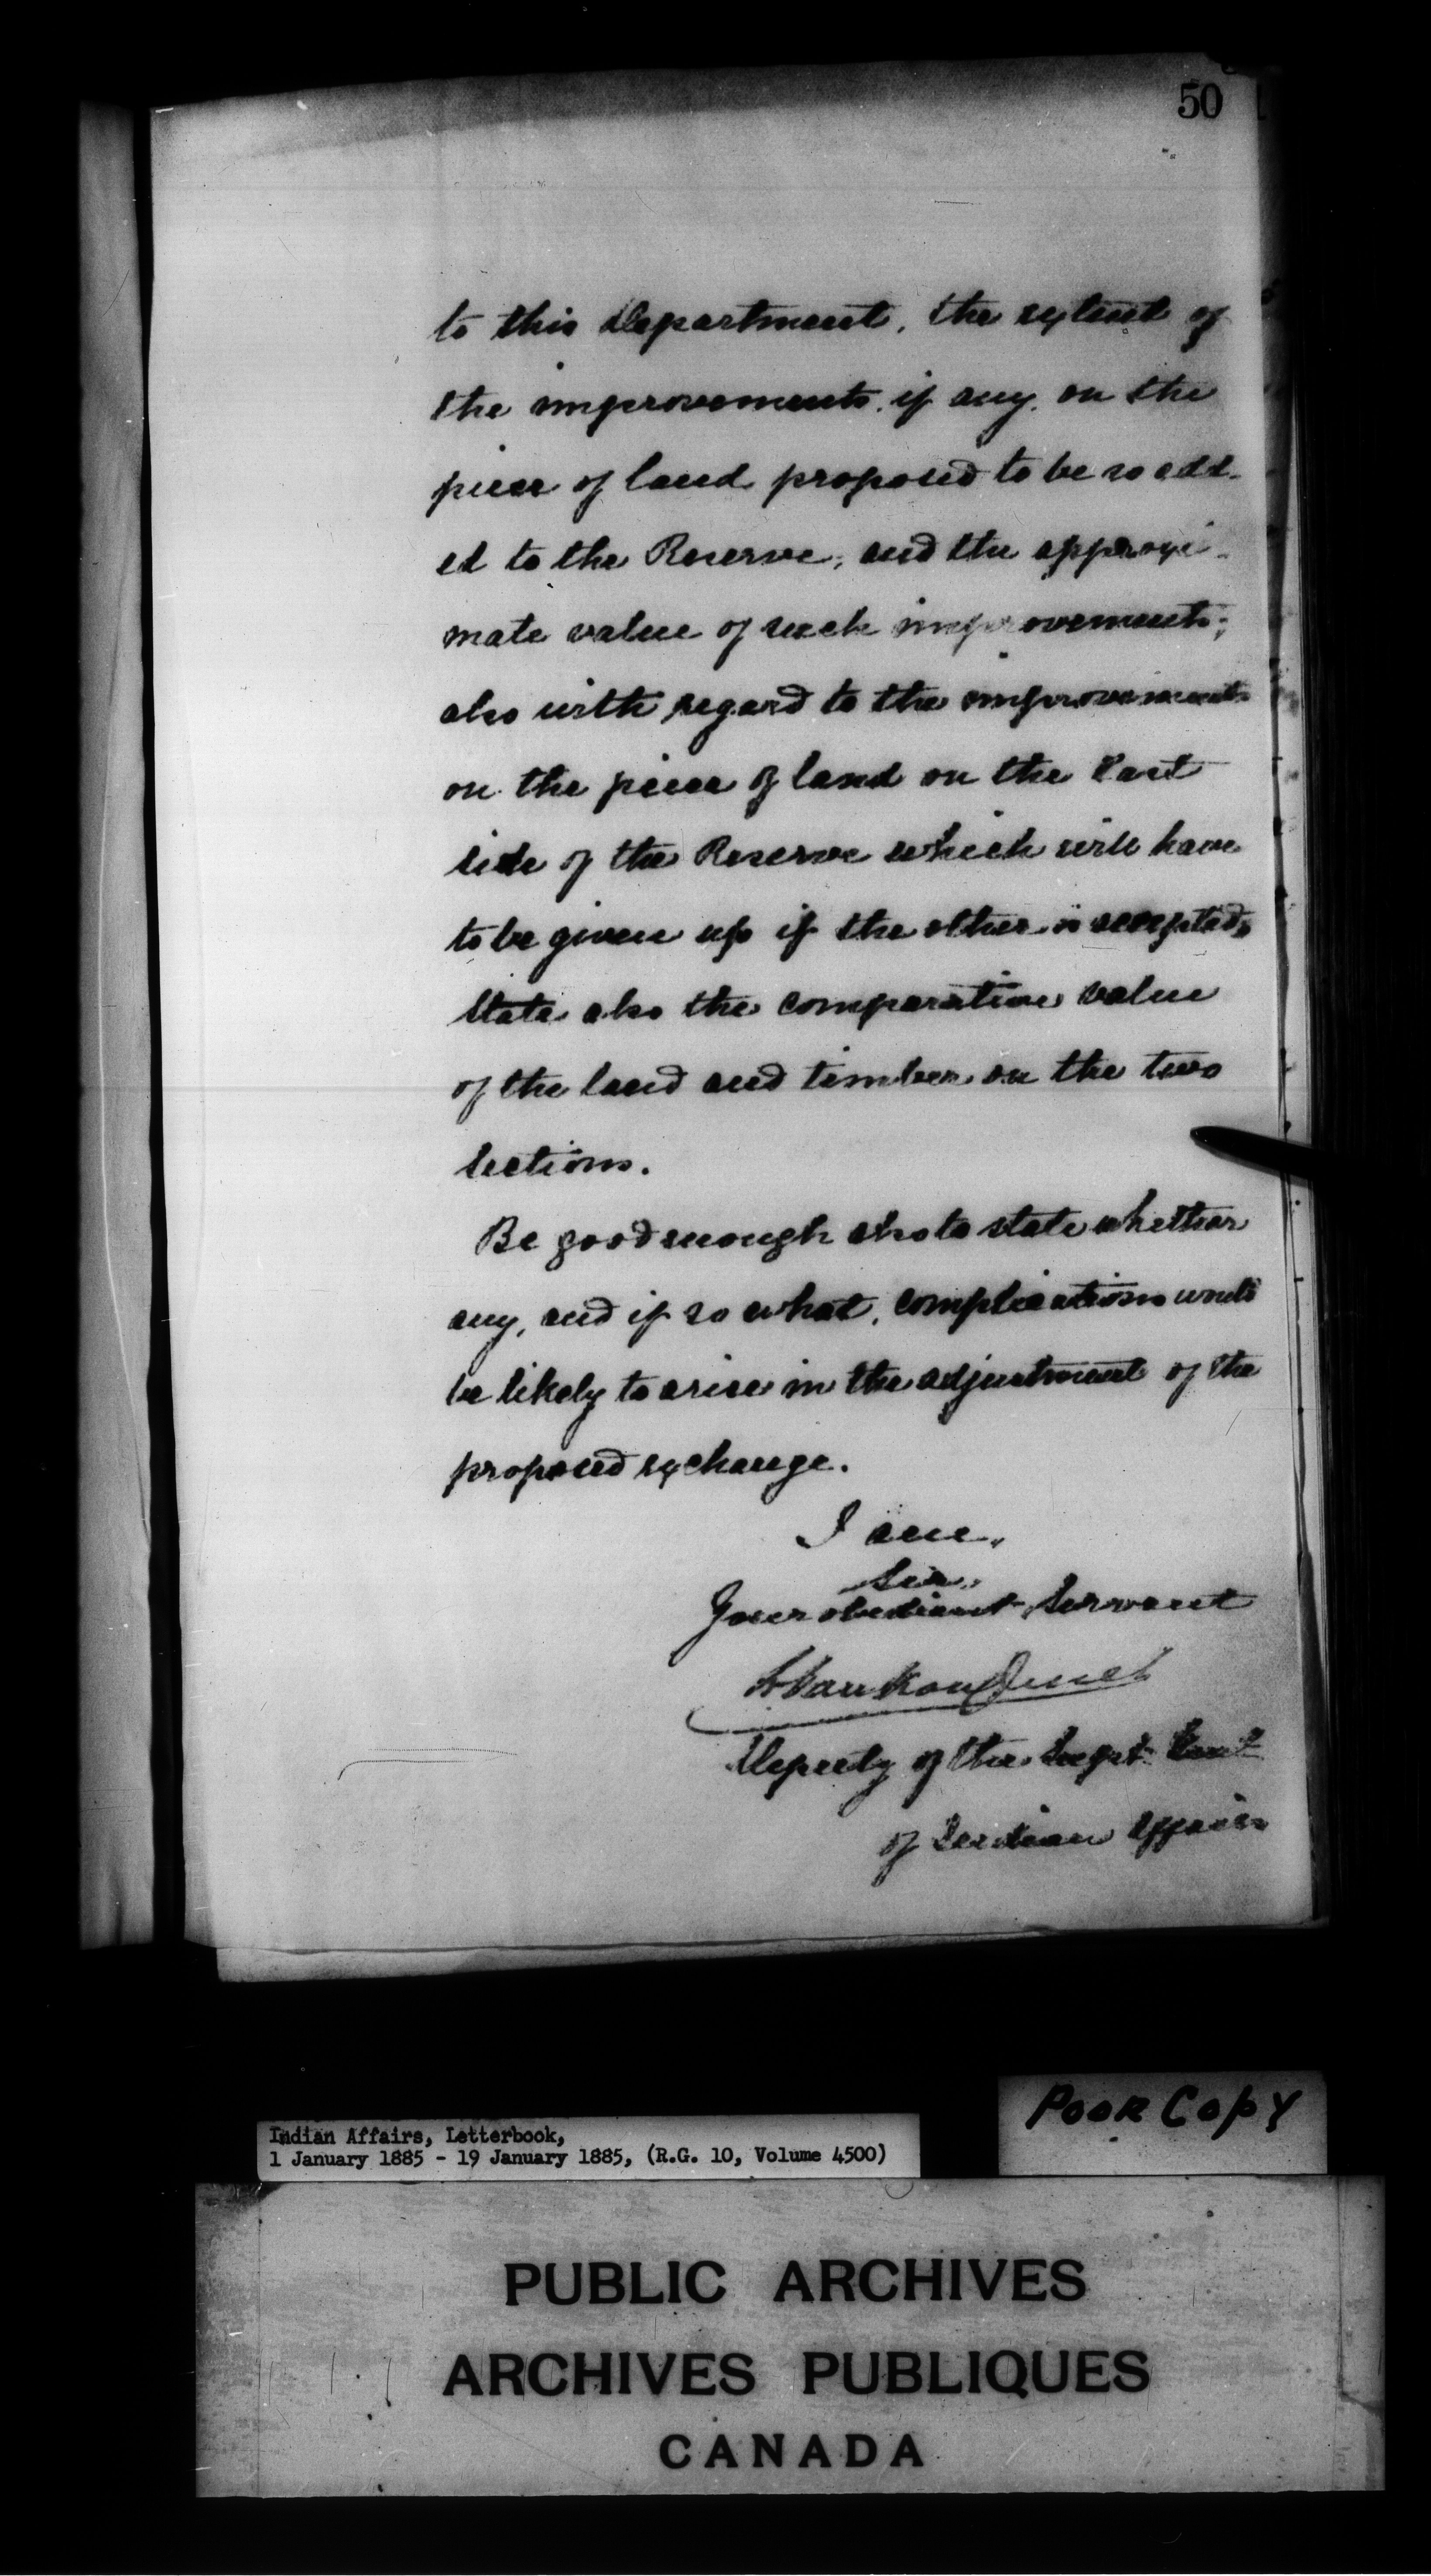 50
to this Department, the extent of
the improvements, if any, on the
piece of land proposed to be so add-
ed to the Reserve, and the approxi-
mate value of such improvements;
also with regard to the improvements
on the piece of land on the East
side of the Reserve which will have
to be given up if the other is accepted,
State also the comparative value
of the land and timber on the two
sections.
Be good enough also to state whether
any, and if so what, complications would
be likely to arise in the adjustment of the
proposed exchange.
I am,
Sir,
Your obedient Servant
L VanKoughnet
Deputy of the Supt. Genl
of Indian Affairs
Poor Copy
Indian Affairs, Letterbook,
1 January 1885 - 19 January 1885, (R.G. 10, Volume 4500)
PUBLIC ARCHIVES
ARCHIVES PUBLIQUES
CANADA